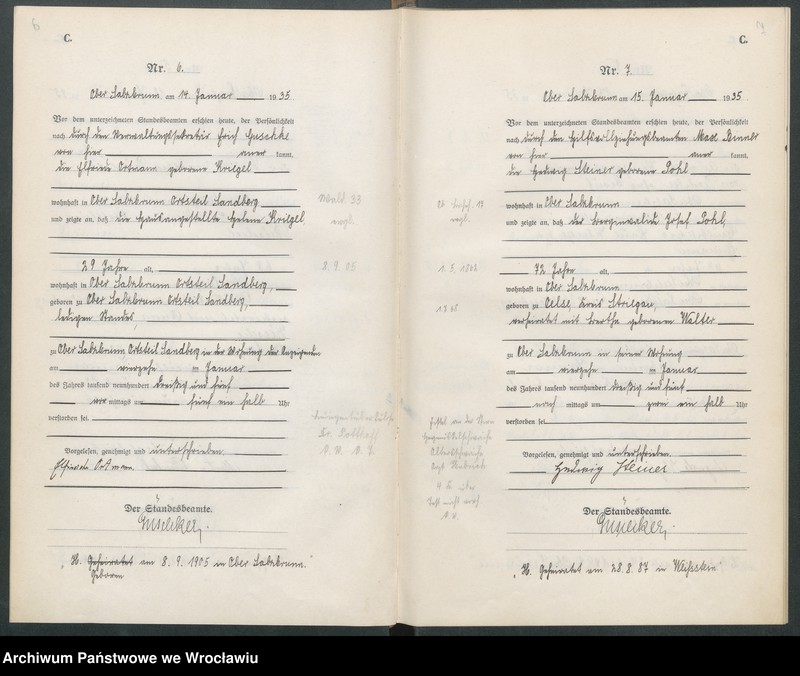 C.
Nr. 6.
Ober Salzbrunn am 14. Januar 1935
Vor dem unterzeichneten Standesbeamten erschien heute, der Persönlichkeit
nach durch den Verwaltungssekretär Erich Guschke
von hier aner kannt,
die Elfriede Ortmann geborene Kriegel
wohnhaft in Ober Salzbrunn Ortsteil Sandberg
und zeigte an, daß die Hausangestellte Helene Kriegel,
29 Jahre alt,
wohnhaft in Ober Salzbrunn Ortsteil Sandberg,
geboren zu Ober Salzbrunn Ortsteil Sandberg,
ledigen Standes,
zu Ober Salzbrunn Ortsteil Sandberg in der Wohnung der Anzeigenden
am vierzehn ten Januar
des Jahres tausend neunhundert dreißig und fünf
vor mittags um fünf ein halb Uhr
verstorben sei.
Vorgelesen, genehmigt und unterschrieben
Elfriede Ortmann.
Der Standesbeamte.
"H. Geheiratet am 8. 9. 1905 in Ober Salzbrunn."
Geboren
8. 9. 05
C.
Nr. 7.
Ober Salzbrunn am 15. Januar 1935.
Vor dem unterzeichneten Standesbeamten erschien heute, der Persönlichkeit
nach durch den Hilfsvollziehungsbeamten Max
von hier aner kannt,
die Hedwig Steiner geborene Pohl
wohnhaft in Ober Salzbrunn
und zeigte an, daß der Berginvalide Josef Pohl,
72 Jahre alt,
wohnhaft in Ober Salzbrunn
geboren zu Oelse, Kreis Striegau,
verheiratet mit Bertha geborenen Walter
zu Ober Salzbrunn in seiner Wohnung
am vierzehn ten Januar
des Jahres tausend neunhundert dreißig und fünf
nach mittags um zwei ein halb Uhr
verstorben sei.
Vorgelesen, genehmigt und unterschrieben
Hedwig Steiner
Der Standesbeamte.
"H. Geheiratet am 28. 8. 87 in Weißstein"
Archiwum Państwowe we Wrocławiu